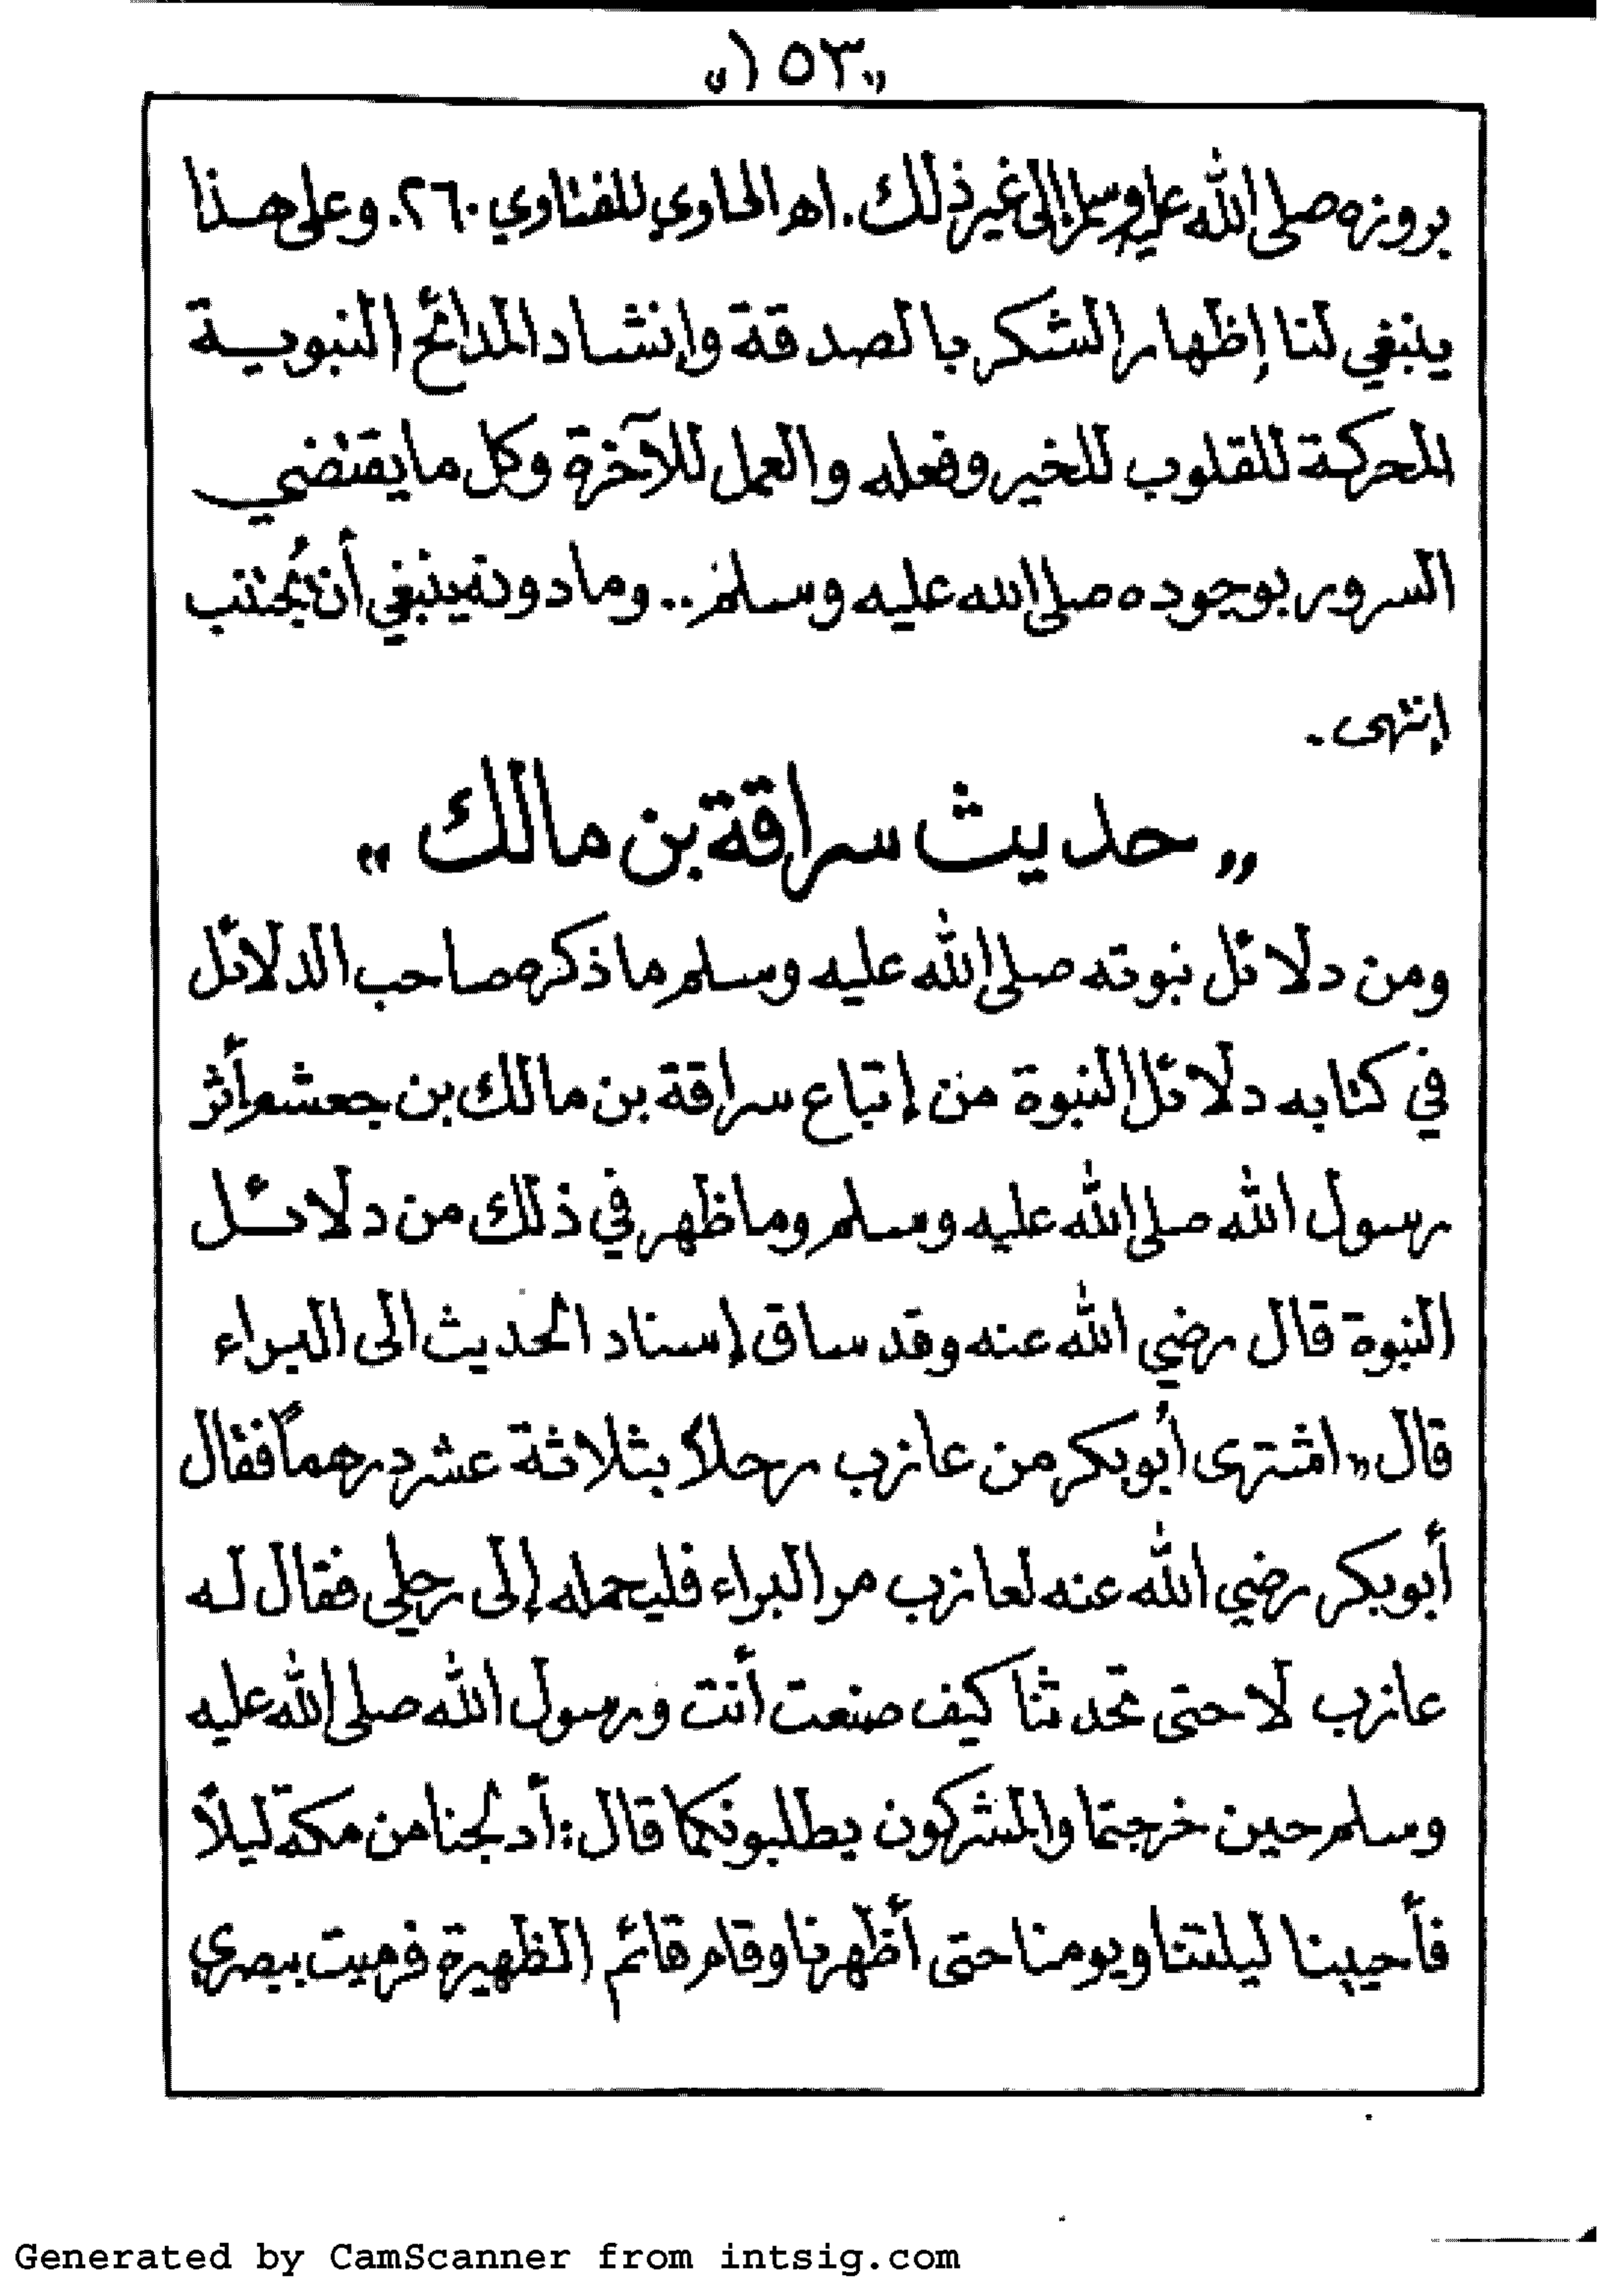 «١٥٣»
بروزه صلى الله عليه وسلم إلى غير ذلك. اهـ الحاوي للفتاوي ٢٦٠. وعلى هذا
ينبغي لنا إظهار الشكر بالصدقة وإنشاد المدائح النبوية
المحركة للقلوب للخير وفعله والعمل للآخرة وكل ما يقتضي
السرور بوجوده صلى الله عليه وسلم.. وما دونه ينبغي أن يُجتنب
إنتهى.
«حديث سراقة بن مالك»
ومن دلائل نبوته صلى الله عليه وسلم ما ذكره صاحب الدلائل
في كتابه دلائل النبوة من إتباع سراقة بن مالك بن جعشم أثر
رسول الله صلى الله عليه وسلم وما ظهر في ذلك من دلائل
النبوة قال رضي الله عنه وقد ساق إسناد الحديث الى البراء
قال «اشترى أبو بكر من عازب رحلاً بثلاثة عشر درهماً فقال
أبو بكر رضي الله عنه لعازب مر البراء فليحمله إلى رحلي فقال له
عازب لا حتى تحدثنا كيف صنعت أنت ورسول الله صلى الله عليه
وسلم حين خرجتما والمشركون يطلبونكما قال: أدلجنا من مكة ليلاً
فأحيينا ليلتنا ويومنا حتى أظهرنا وقام قائم الظهيرة فرميت ببصري
Generated by CamScanner from intsig.com